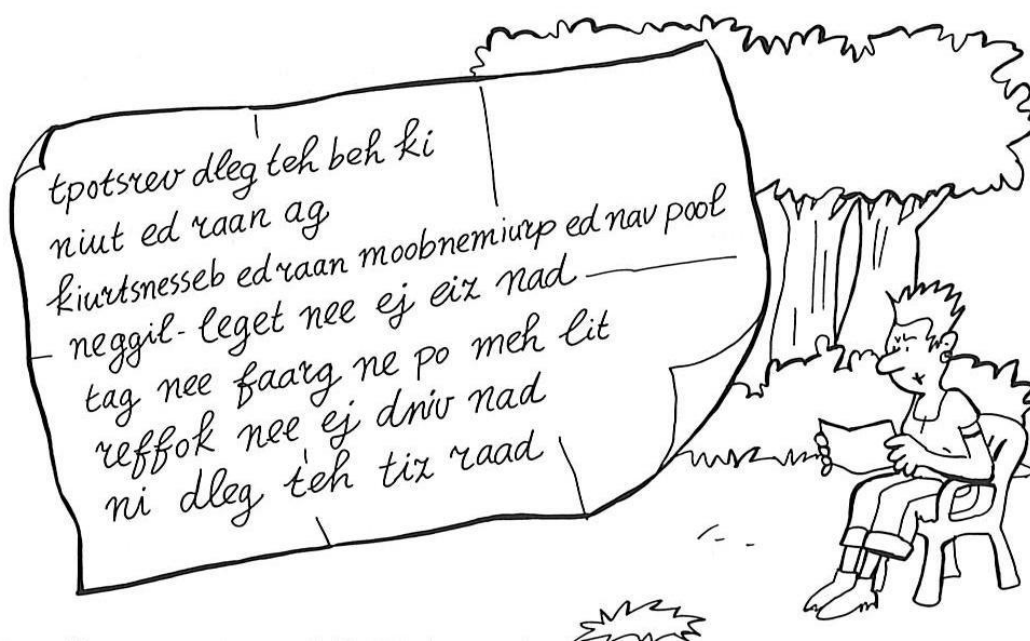 tpotsrev dleg teh beh ki
niut ed raan ag
kiurtsnesseb ed raan moobnemiurp ed nav pool
neggil-leget nee ej eiz nad
tag nee faarg ne po meh lit
reffok nee ej dniv nad
ni dleg teh tiz raad